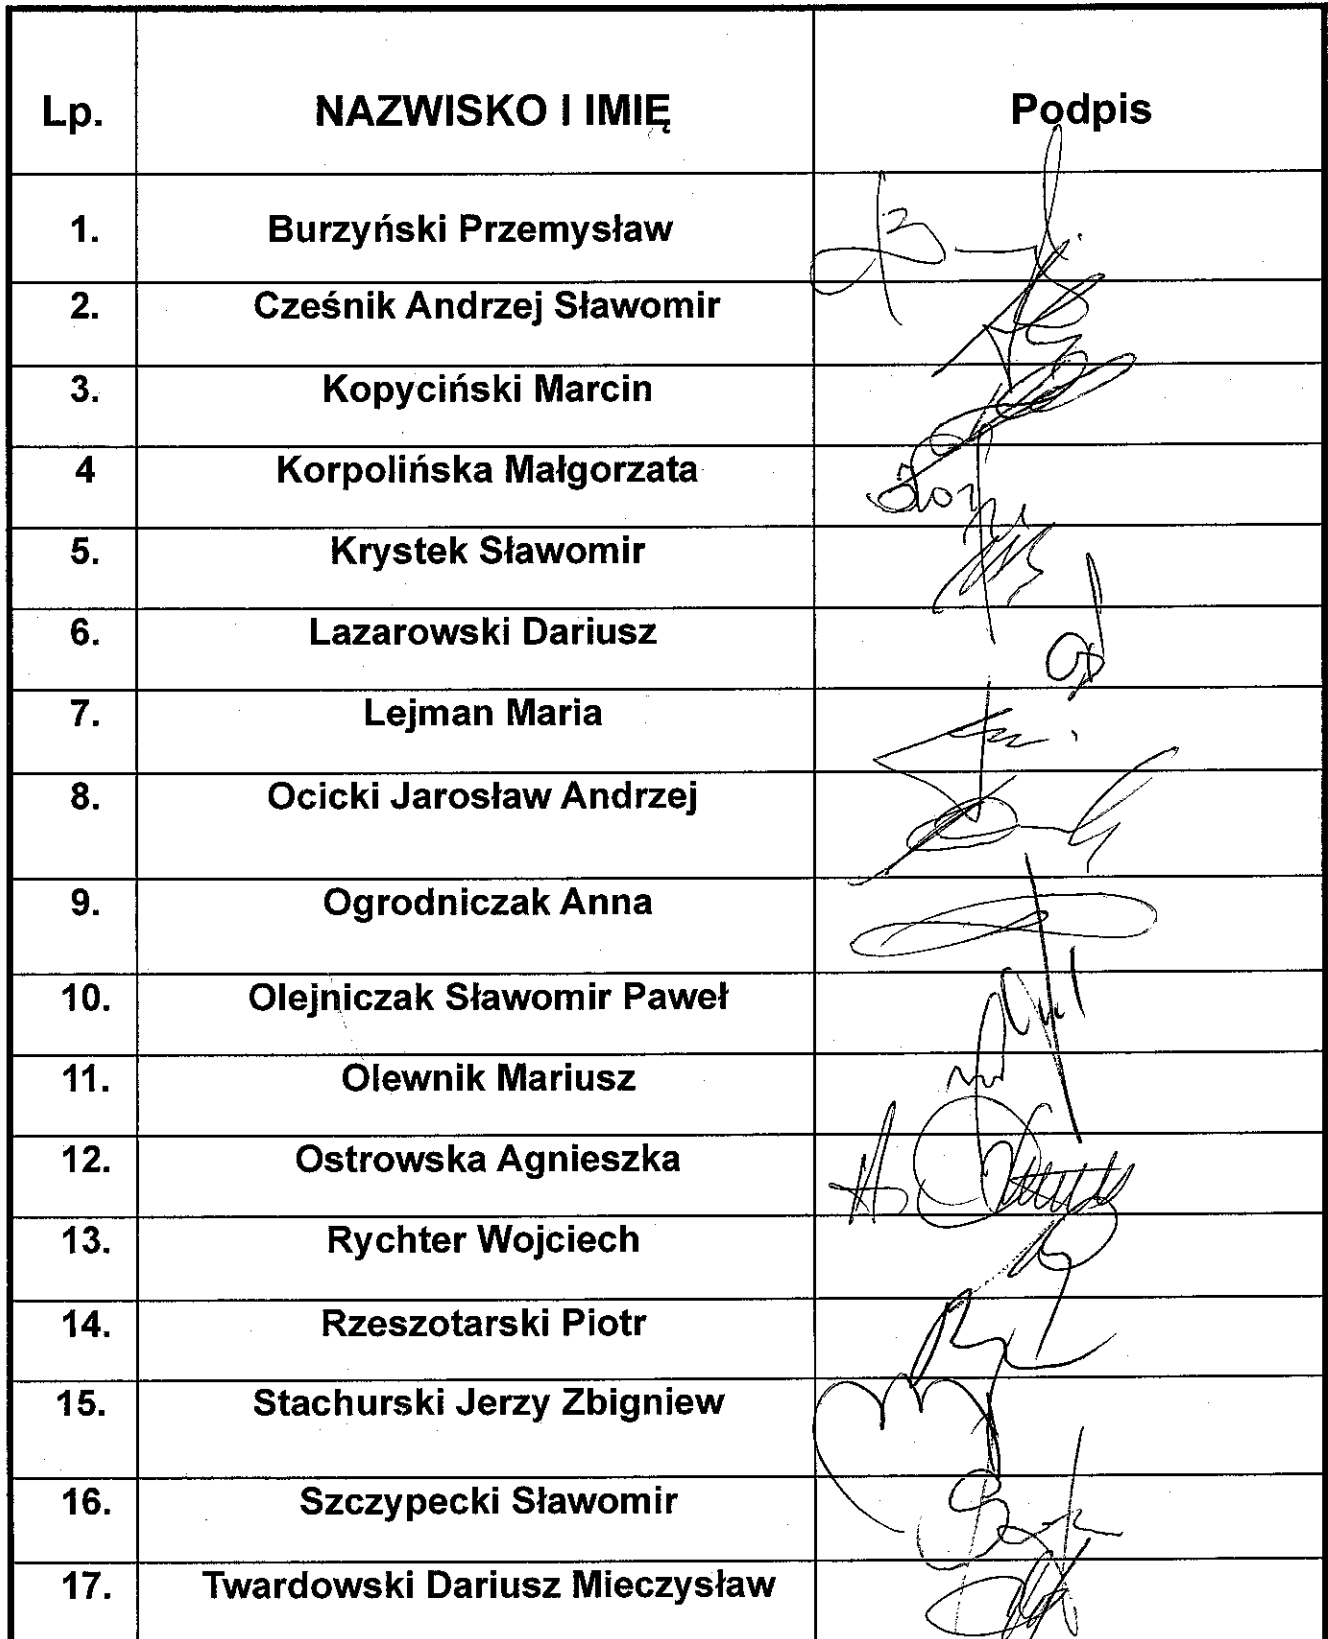 Lp. NAZWISKO I IMIĘ Podpis
1. Burzyński Przemysław
2. Cześnik Andrzej Sławomir
3. Kopyciński Marcin
4 Korpolińska Małgorzata
5. Krystek Sławomir
6. Lazarowski Dariusz
7. Lejman Maria
8. Ocicki Jarosław Andrzej
9. Ogrodniczak Anna
10. Olejniczak Sławomir Paweł
11. Olewnik Mariusz
12. Ostrowska Agnieszka
13. Rychter Wojciech
14. Rzeszotarski Piotr
15. Stachurski Jerzy Zbigniew
16. Szczypecki Sławomir
17. Twardowski Dariusz Mieczysław